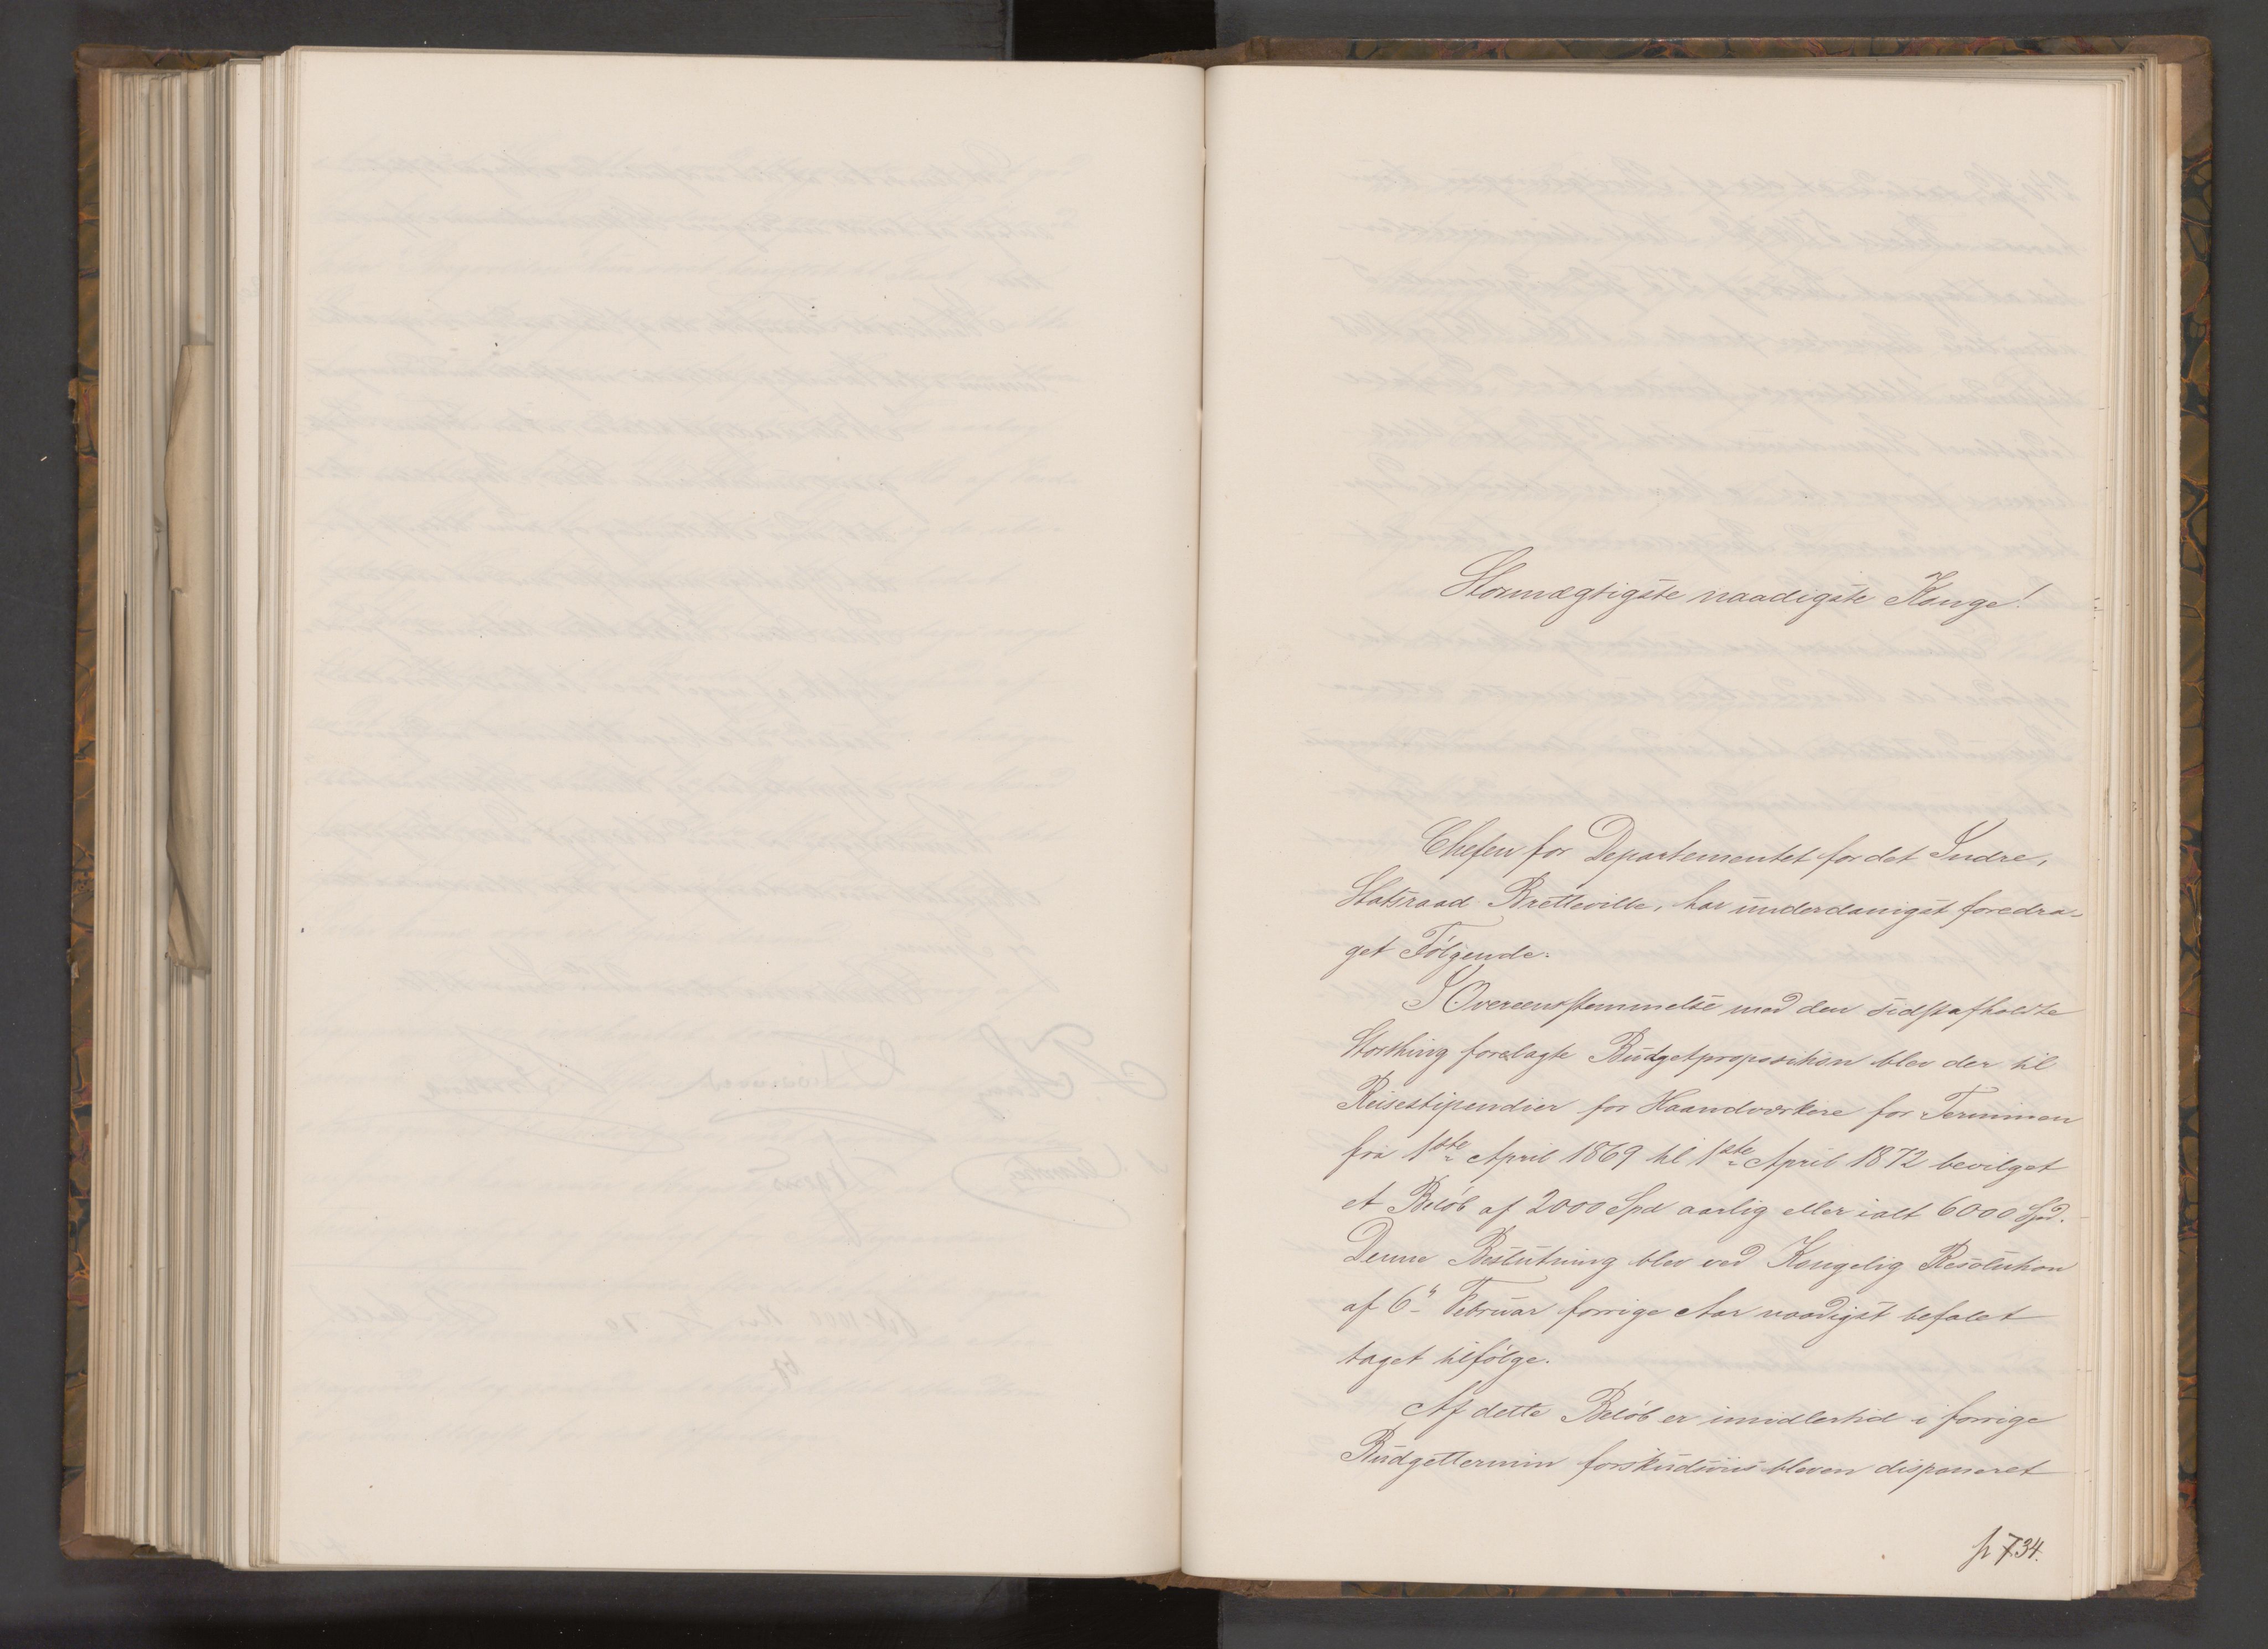 Stormægtigste naadigste Konge!
Chefen for Departementet for det Indre,
Statsraad Bretteville, har underdanigst foredra-
get Følgende:
I Overeensstemmelse med den sidstafholdte
Storthing forelagte Budgetproposition blev der til
Reisestipendier for Haandværkere for Terminen
fra 1ste April 1869 til 1ste April 1872 bevilget
et Beløb af 2000 Spd aarlig eller ialt 6000 Spd.
Denne Beslutning blev ved Kongelig Resolution
af 6te Februar forrige Aar naadigst befalet
taget tilfølge.
Af dette Beløb er imidlertid i forrige
Budgettermin forskudsviis bleven disponeret
p 734.